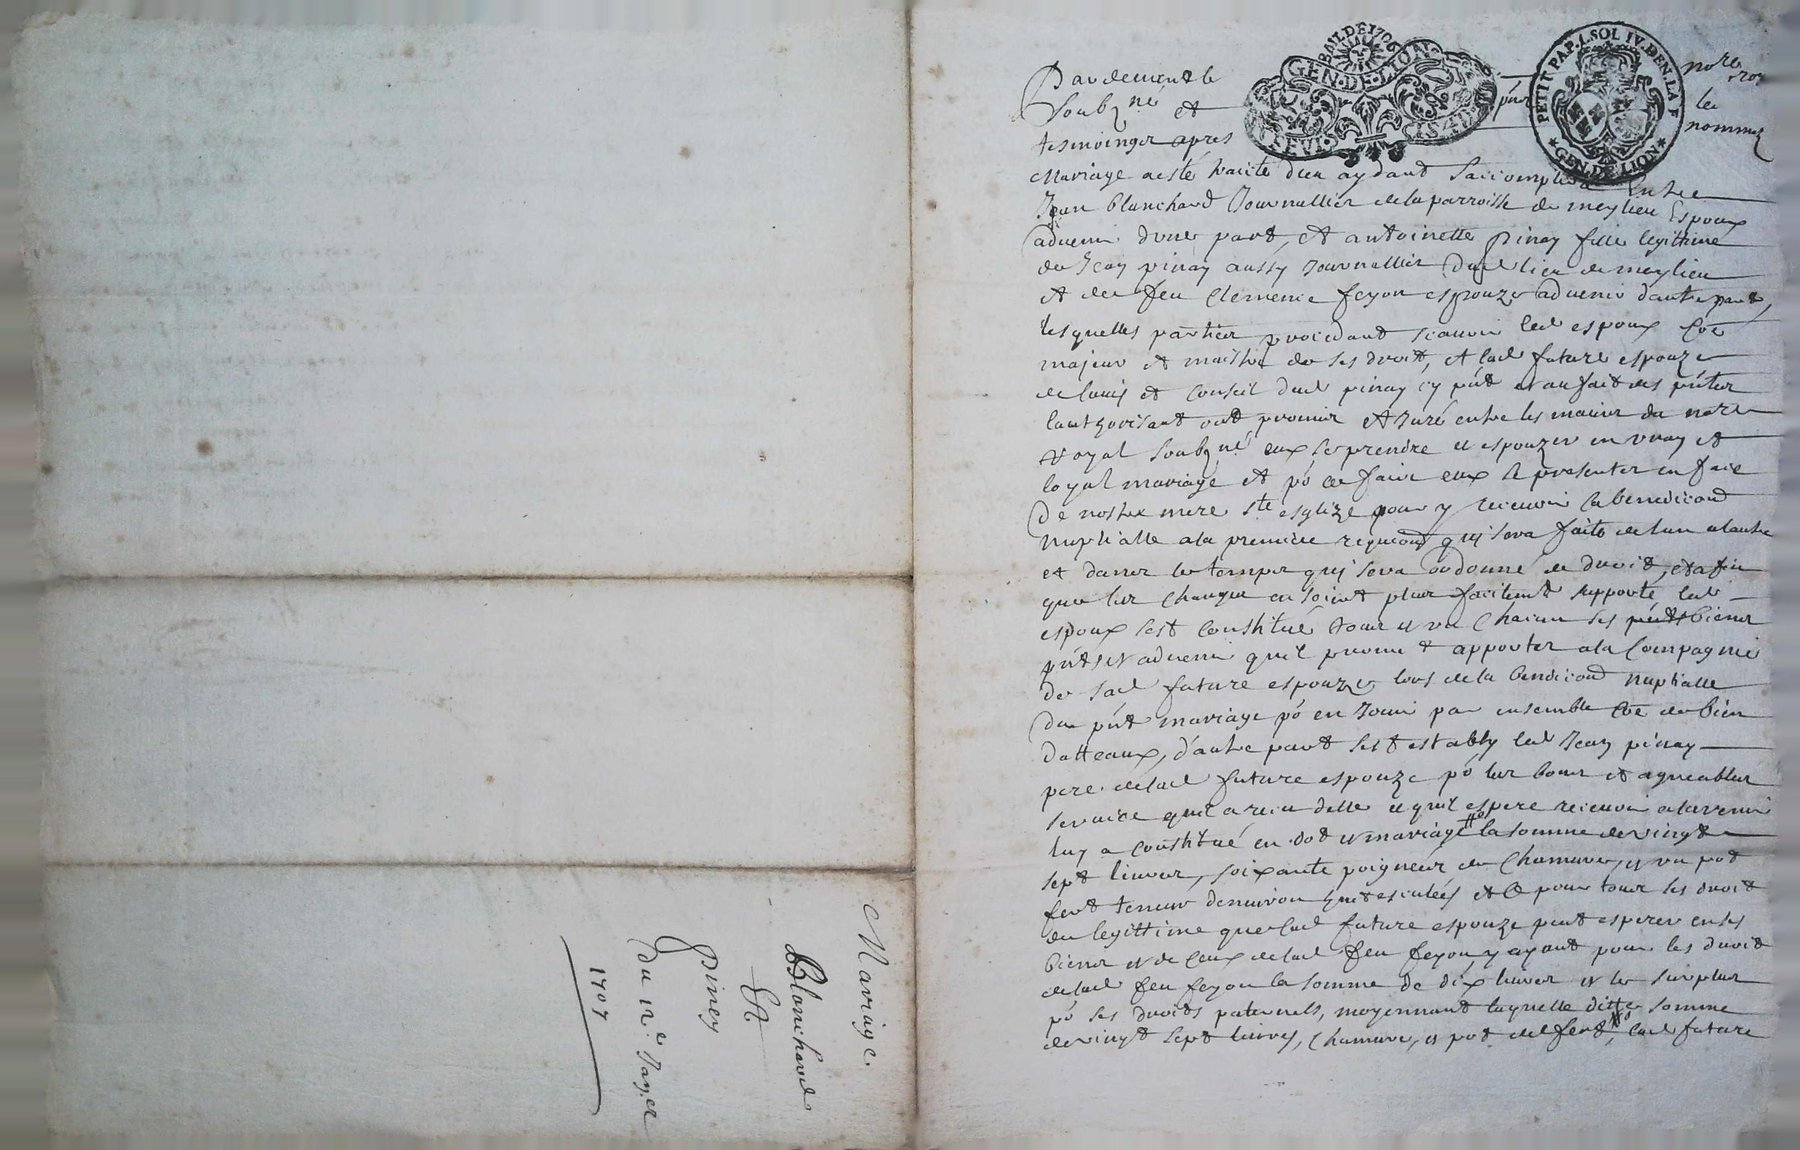 Mariage
Blanchard
Et
Piney
du 12e Janer
1707
BAIL DE 1706
GEN. DE LION
PETIT PAP. 1. SOL IV. DEN. LA F
GEN. DE LION
Pardevant le notre roy
Soubzné et pnt les
tesmoings apres nommez
Mariage a esté traicté dieu aydant saccomplira Entre
Jean blanchard Journallier de la parroisse de meylieu Espoux
advenir dune part, et antoinette pinay fille legittime
de Jean pinay aussy Journallier dud lieu de meylieu
et de feu Clemence feyon espouze advenir dautre part,
lesquelles parties procedant scavoir led espoux coe
majeur et maistre de ses droit, et lad future espouze
de lavis et conseil dud pinay cy pnt et au fait des pntes
lauthorisant ont promis et Juré entre les mains du notre
royal soubzné eux se prendre et espouzer en vray et
loyal mariage et po ce faire eux se presenter en face
de nostre mere ste esglize pour y recevoir la benediction
nuptialle a la premiere requion quj sera faite de lun a lautre
et dans le temps quj sera ordonné de droit, et afin
que les charges en soient plus facilemt supporté led
espoux sest constitué tous et un chacun ses biens
pnts et advenir quil promet apporter a la compagnie
de sad future espouze lors de la benedicion nuptialle
du pnt mariage po en Jouir par ensemble coe de bien
dotteaux, d'autre part sest estably led Jean pinay
pere de lad future espouze po les bons et agreables
service quil a receu delle et quil espere recevoir a ladvenir
luy a constitué en dot et mariage la somme de vingt
sept livres, soixante poigneez de chanvre, et un pot
fert teneur denviron huit esculées et ce pour tous les droit
de legittime que lad future espouze peut esperer en ses
biens et de ceux de lad feu feyon, y ayant pour les droit
de lad feu feyon la somme de dix livres et le surplus
po ses droits paternels, moyennant laquelle ditte somme
de vingt sept livres, chanvre, et pot de fert, lad future